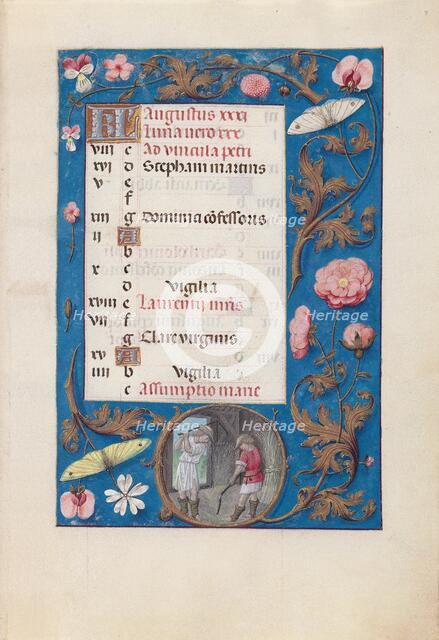 KL Augustus xxxi
Luna vero xxx
viii c Ad vincula petri
xvi d Stephani martiris
v e
f
xiii g Dominici cōfessoris
ii A
x b
c
d Vigilia
xviii e Laurentij mr̄is
vii f
g Clare virginis
xv A
iiii b Vigilia
c Assumptio marie
Heritage
Heritage
Heritage
Heritage
Heritage
Heritage